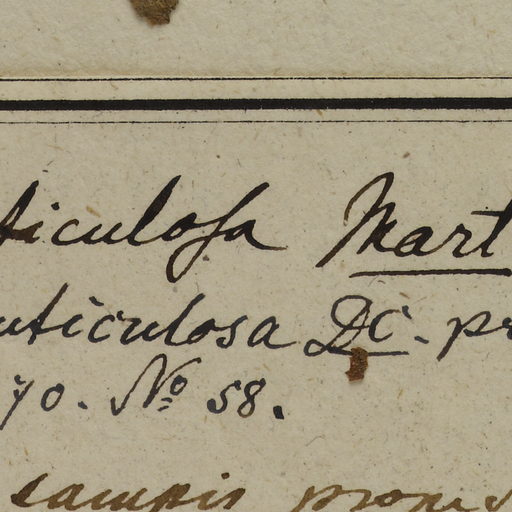 ticulosa Mart
uticulosa DC. pr
70. No 58.
campis prope